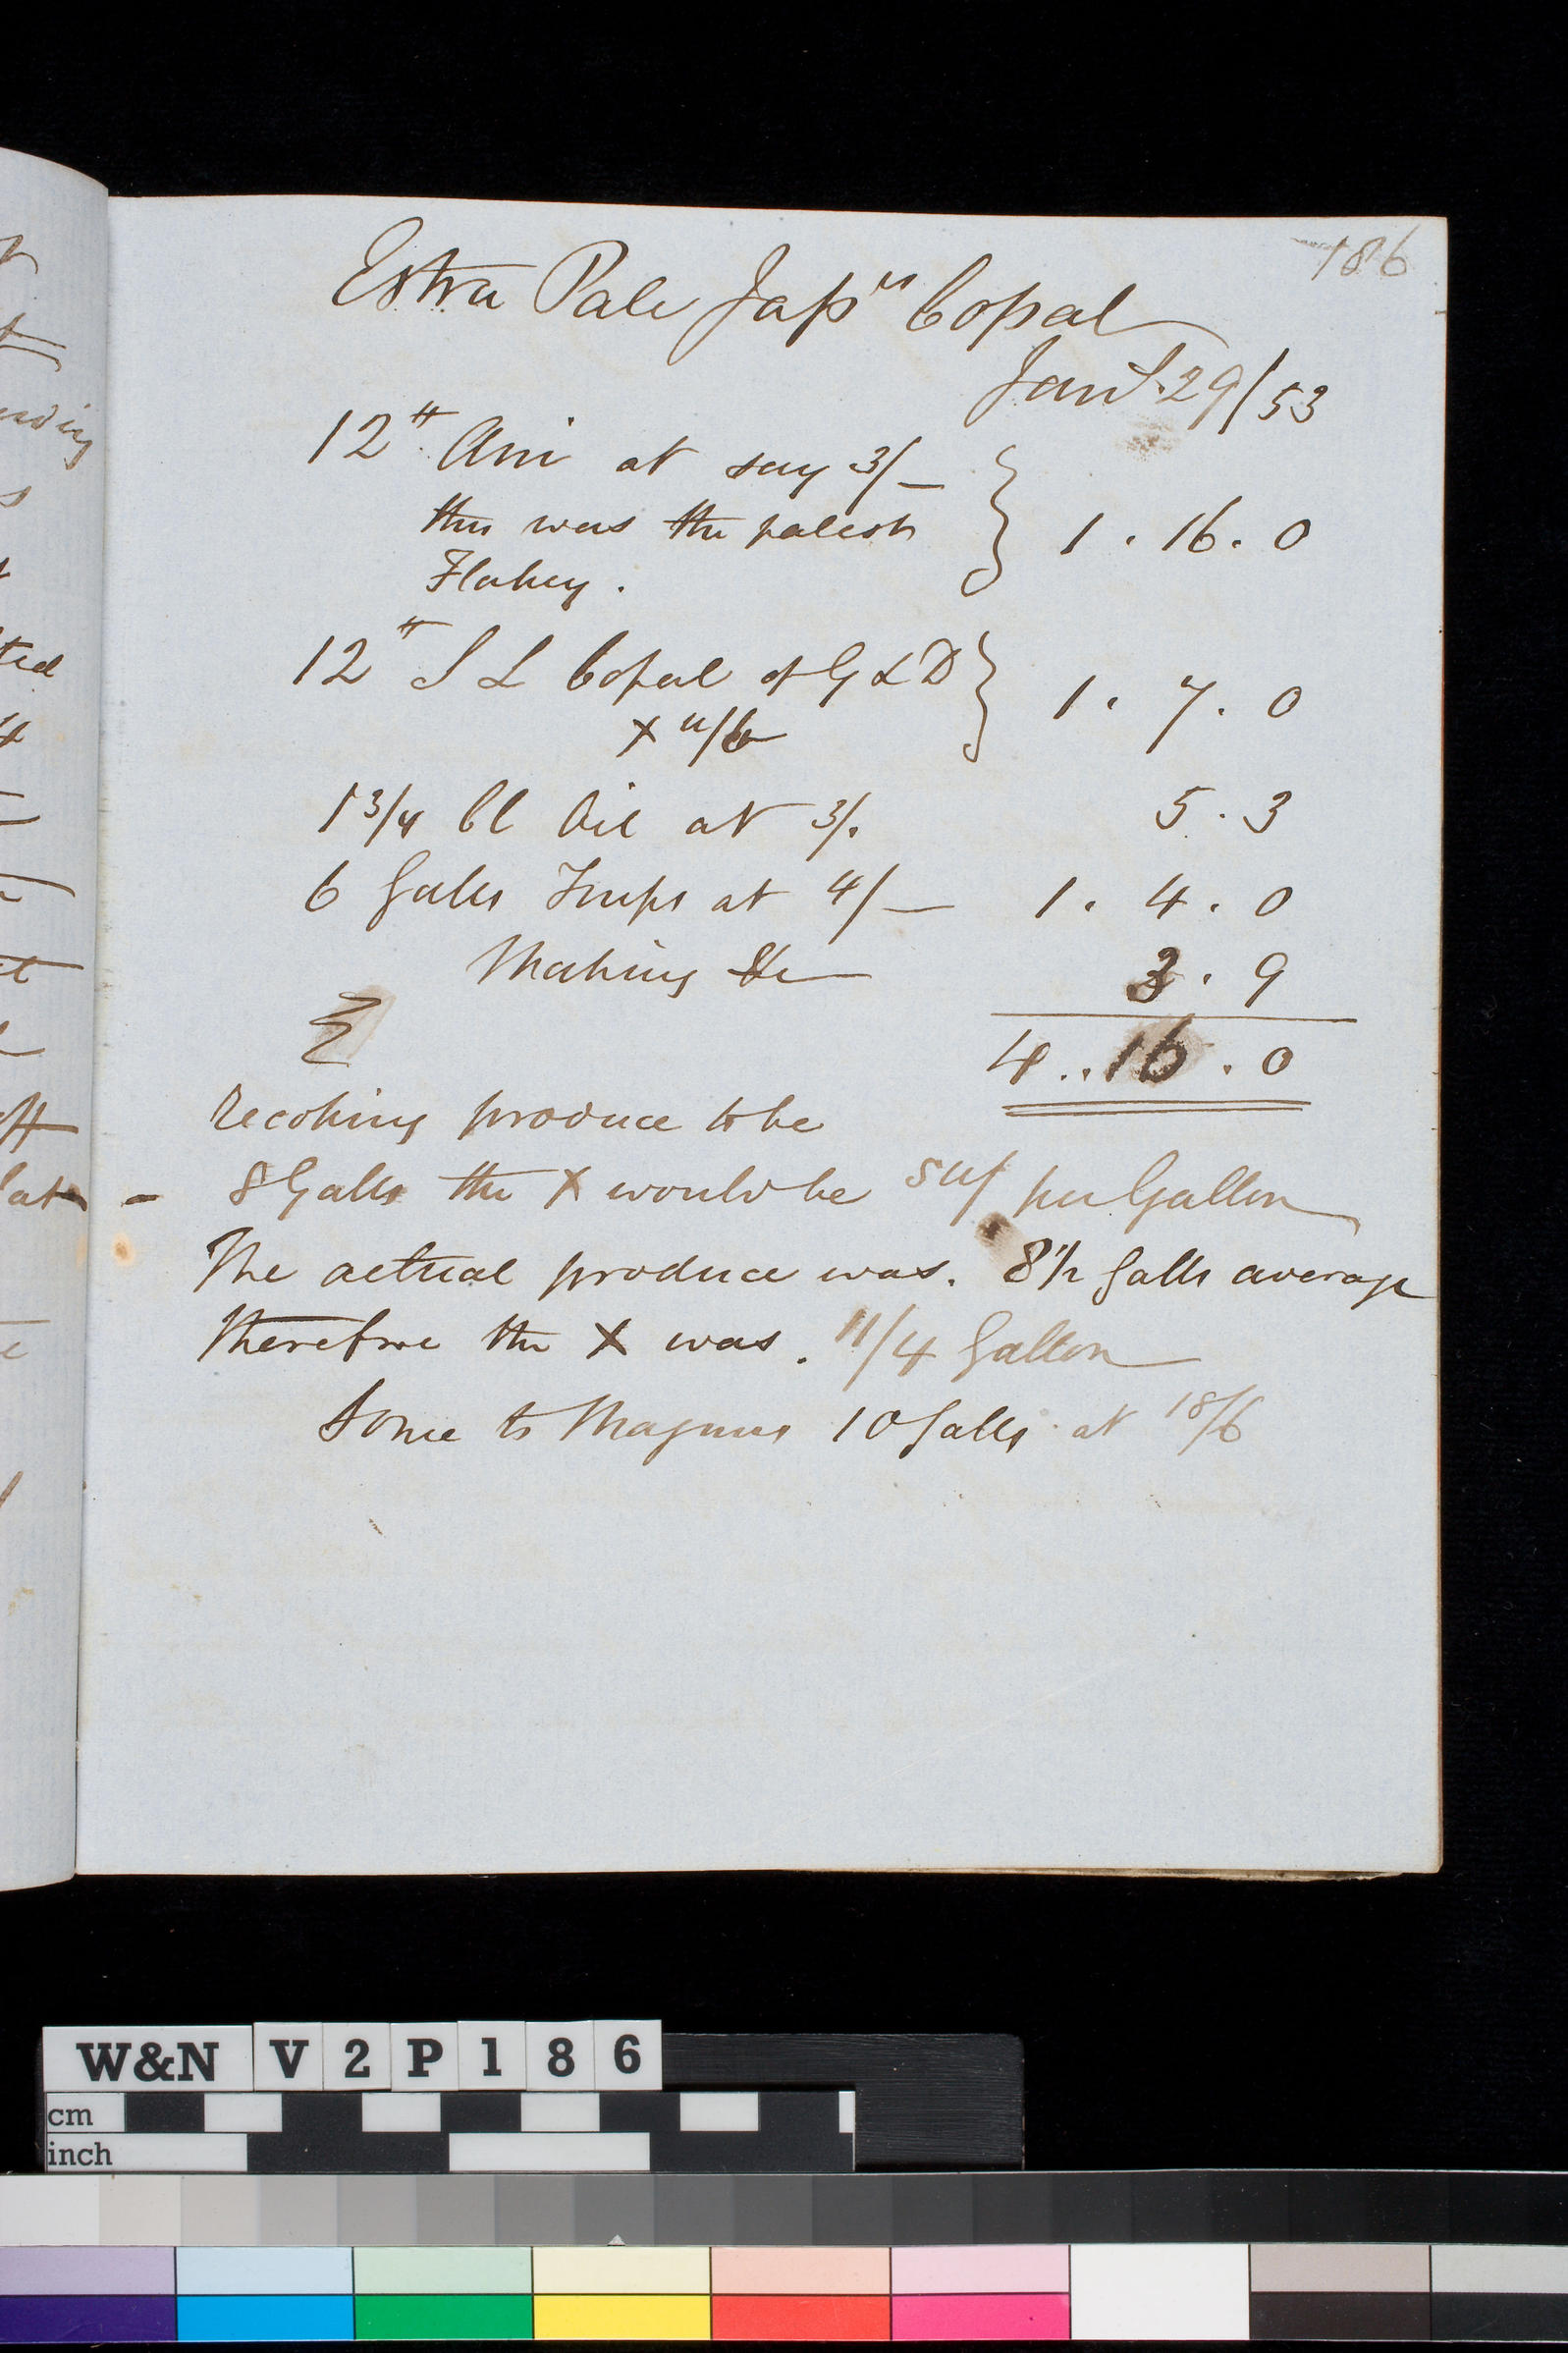 186
Extra Pale Jap<sup>ns</sup> Copal
Jany 29/53
12<sup>tt</sup> Ani at say 3/–
this was the palest
Flakey.
1 . 16 . 0
12<sup>tt</sup> S L Copal of G & D
1 . 7 . 0
1 3/4 Cl Oil at 3/.
5 . 3
6 Galls Turps at 4/–
1 . 4 . 0
Making &c
3 . 9
4 . . 16 . 0
recoking produce to be
8 Galls the X would be per Gallon
The actual produce was. 8 1/2 Galls average
therefore the X was. 11/4 Gallon
Some to Magnus 10 Galls at 18/6
W&N V2P186
cm
inch